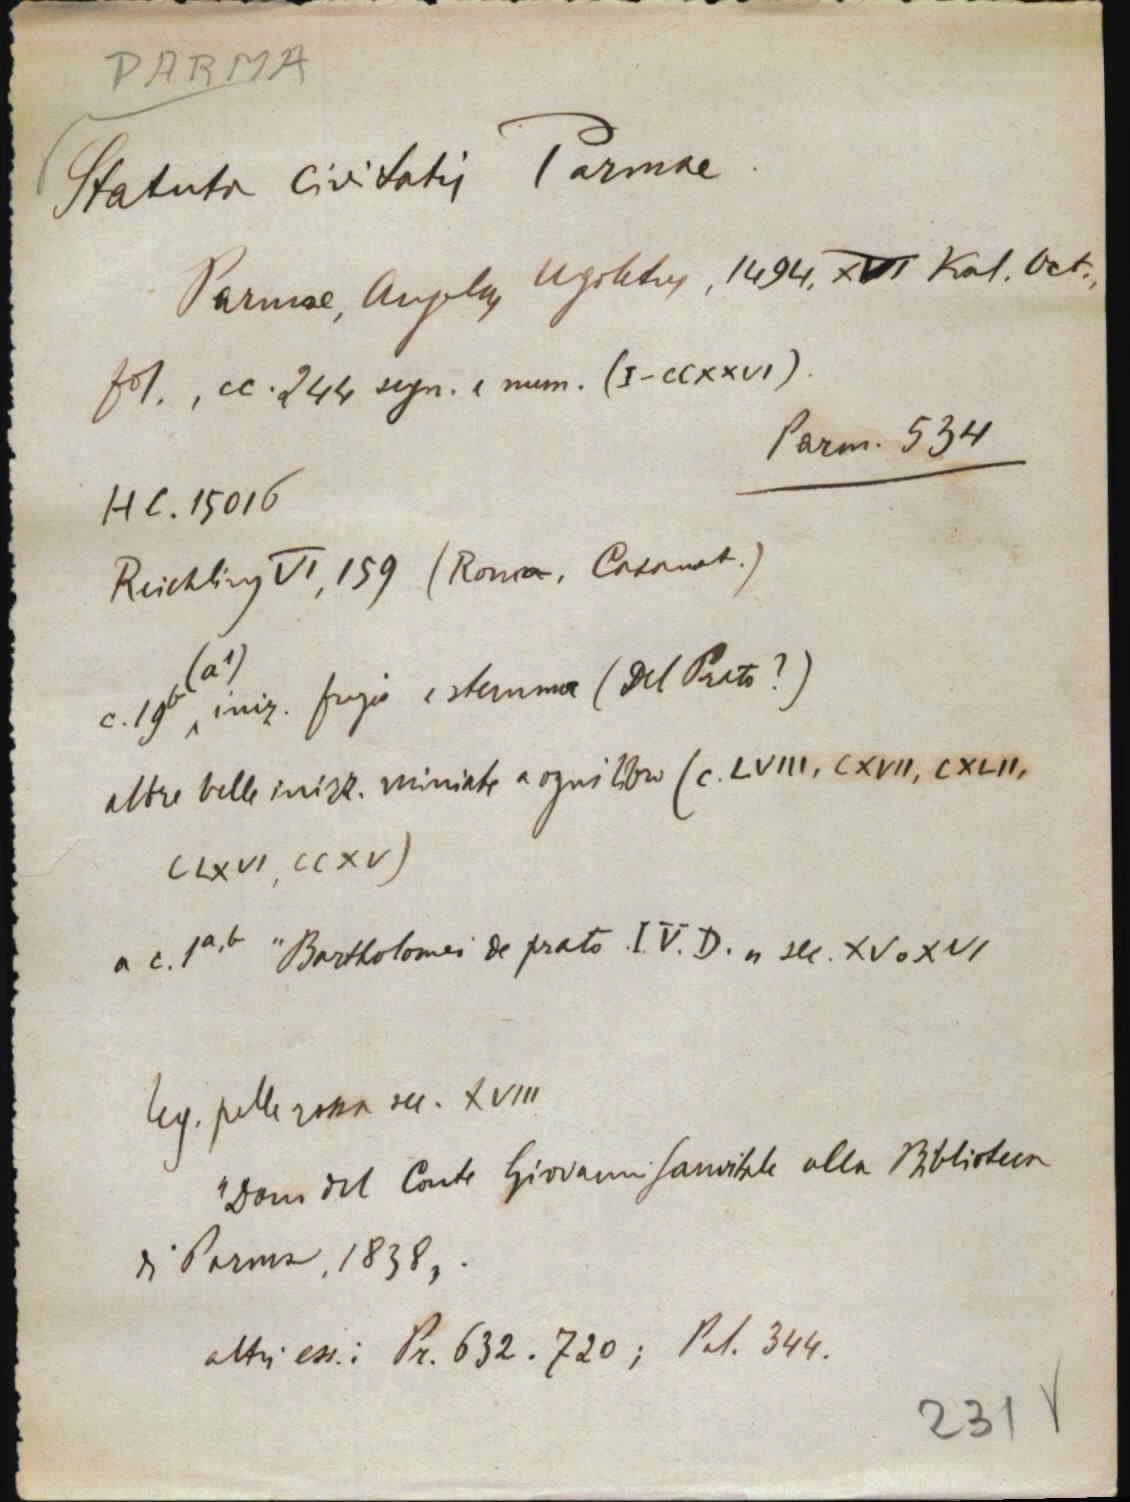 PARMA
Statuta Civitatis Parmae.
Parmae, Angelus Ugoletus, 1494, XVI Kal. Oct.,
fol., cc. 244 segn. e num. (I-CCXXVI).
Parm. 534
HC. 15016
Reichling VI, 159 (Roma, Casanat.)
(a¹)
c. 19ᵇ iniz. fregio e stemma (Del Prato?)
altre belle inizz. miniate a ogni libro (c. LVIII, CXVII, CXLII,
CLXVI, CCXV)
a c. 1ᵃ,ᵇ "Bartholomei de prato I.V.D." sec. XV o XVI
leg. pelle rossa sec. XVIII
"Dono del Conte Giovanni Sanvitale alla Biblioteca
di Parma, 1838".
altri es.: Pr. 632. 720; Pal. 344.
231 V